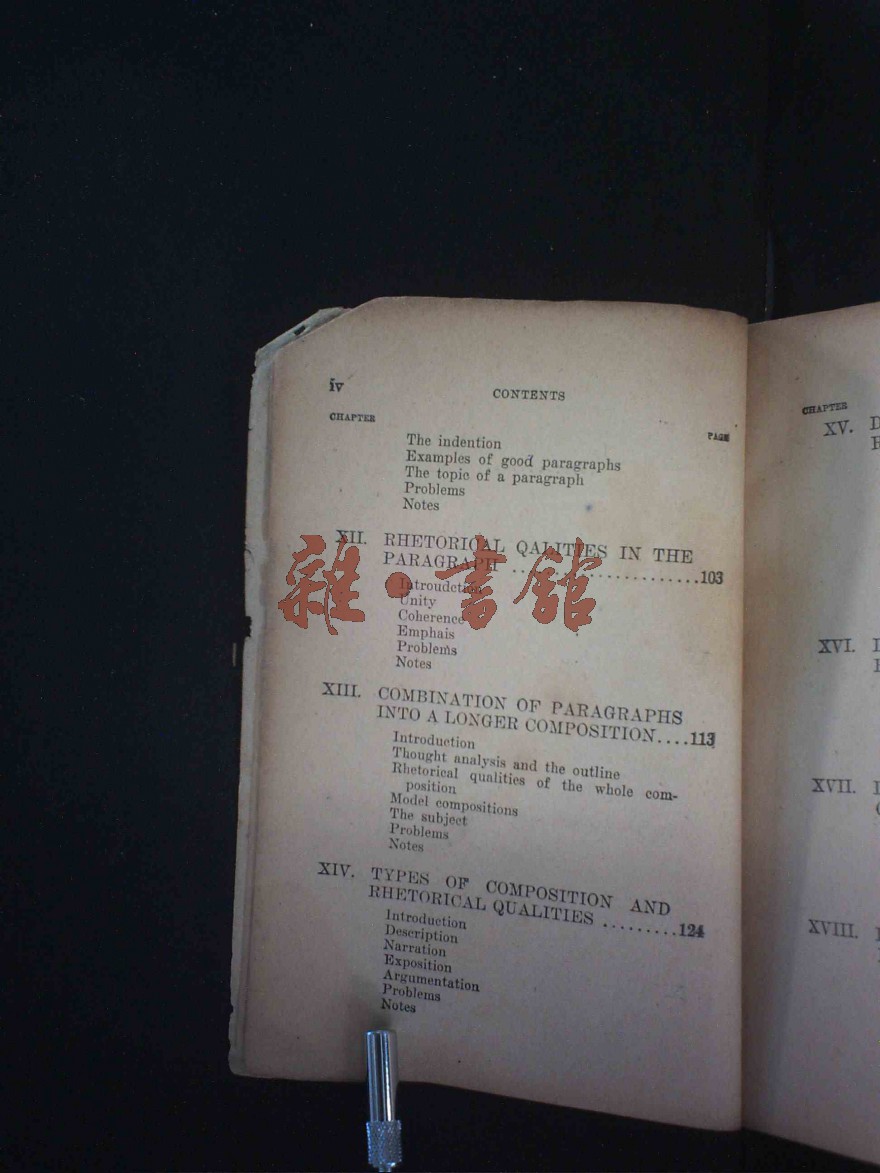 iv
CONTENTS
CHAPTER
PAGE
The indention
Examples of good paragraphs
The topic of a paragraph
Problems
Notes
XII. RHETORICAL QALITIES IN THE
PARAGRAPH ........................103
Introudction
Unity
Coherence
Emphais
Problems
Notes
XIII. COMBINATION OF PARAGRAPHS
INTO A LONGER COMPOSITION....113
Introduction
Thought analysis and the outline
Rhetorical qualities of the whole com-
position
Model compositions
The subject
Problems
Notes
XIV. TYPES OF COMPOSITION AND
RHETORICAL QUALITIES .........124
Introduction
Description
Narration
Exposition
Argumentation
Problems
Notes
雜·書館
CHAPTER
XV.
XVI.
XVII.
XVIII.